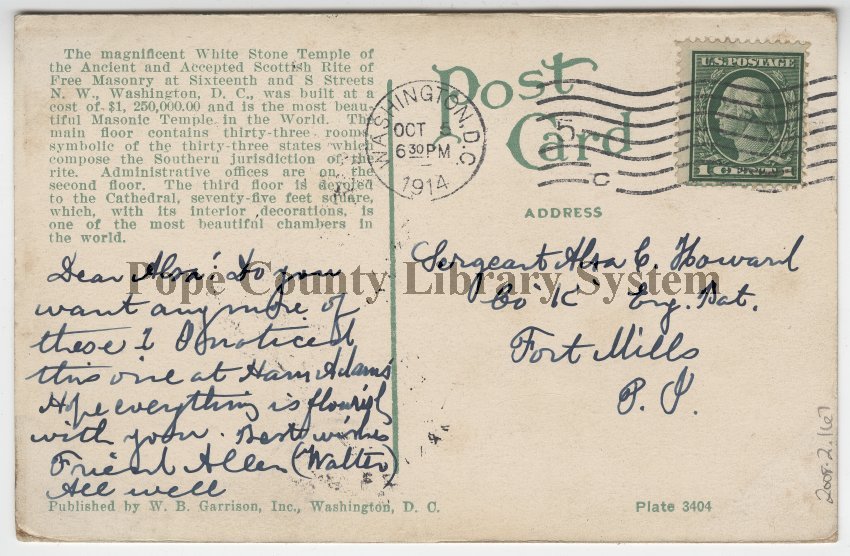 The magnificent White Stone Temple of
the Ancient and Accepted Scottish Rite of
Free Masonry at Sixteenth and S Streets
N. W., Washington, D. C., was built at a
cost of $1, 250,000.00 and is the most beau-
tiful Masonic Temple in the World. The
main floor contains thirty-three rooms
symbolic of the thirty-three states which
compose the Southern jurisdiction of the
rite. Administrative offices are on the
second floor. The third floor is devoted
to the Cathedral, seventy-five feet square,
which, with its interior decorations, is
one of the most beautiful chambers in
the world.
Dear Alsa: Do you
want any more of
these I noticed
this one at Ham Adams'
Hope everything is flourish
with you. Best wishes
Friend Allen (Walter)
All well
Published by W. B. Garrison, Inc., Washington, D. C.
Post
Card
WASHINGTON, D.C.
OCT 5
6 30 PM
1914
U.S. POSTAGE
1 CENT 1
ADDRESS
Sergeant Alsa C. Howard
Co "K" Eng. Bat.
Fort Mills
P. I.
Plate 3404
2008.2.167
Pope County Library System